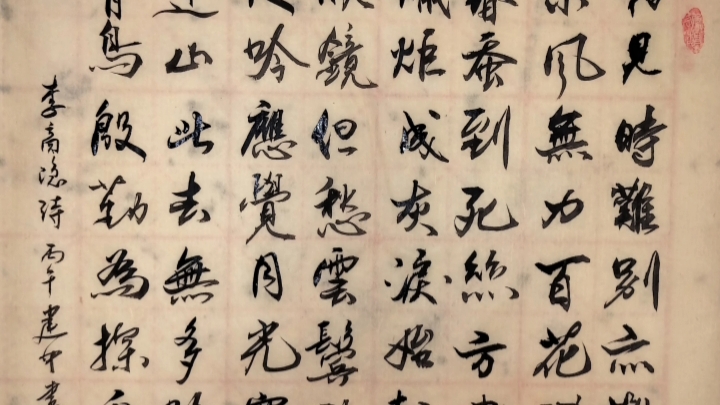 見時難別亦
風無力百花
蚕到死絲方
炬成灰淚始
鏡但愁雲鬢
吟應覺月光
山此去無多
鳥殷勤為探
李商隱詩 丙午建中書